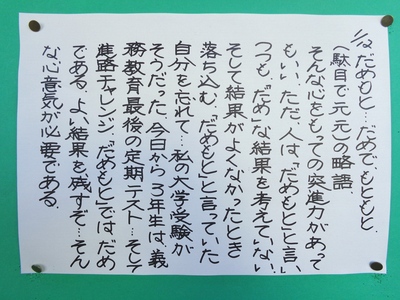 11/12 だめもと…だめでもともと。
(駄目で元元)の略語
そんな心をもっての突進力があって
もいい。ただ、人は「だめもと」と言い
つつも、「だめ」な結果を考えていない。
そして結果がよくなかったとき
落ち込む。「だめもと」と言っていた
自分を忘れて…私の大学受験が
そうだった。今日から3年生は、義
務教育最後の定期テスト…そして
進路チャレンジ。「だめもと」ではだめ
である。よい結果を残すぞ…そん
な心意気が必要である。